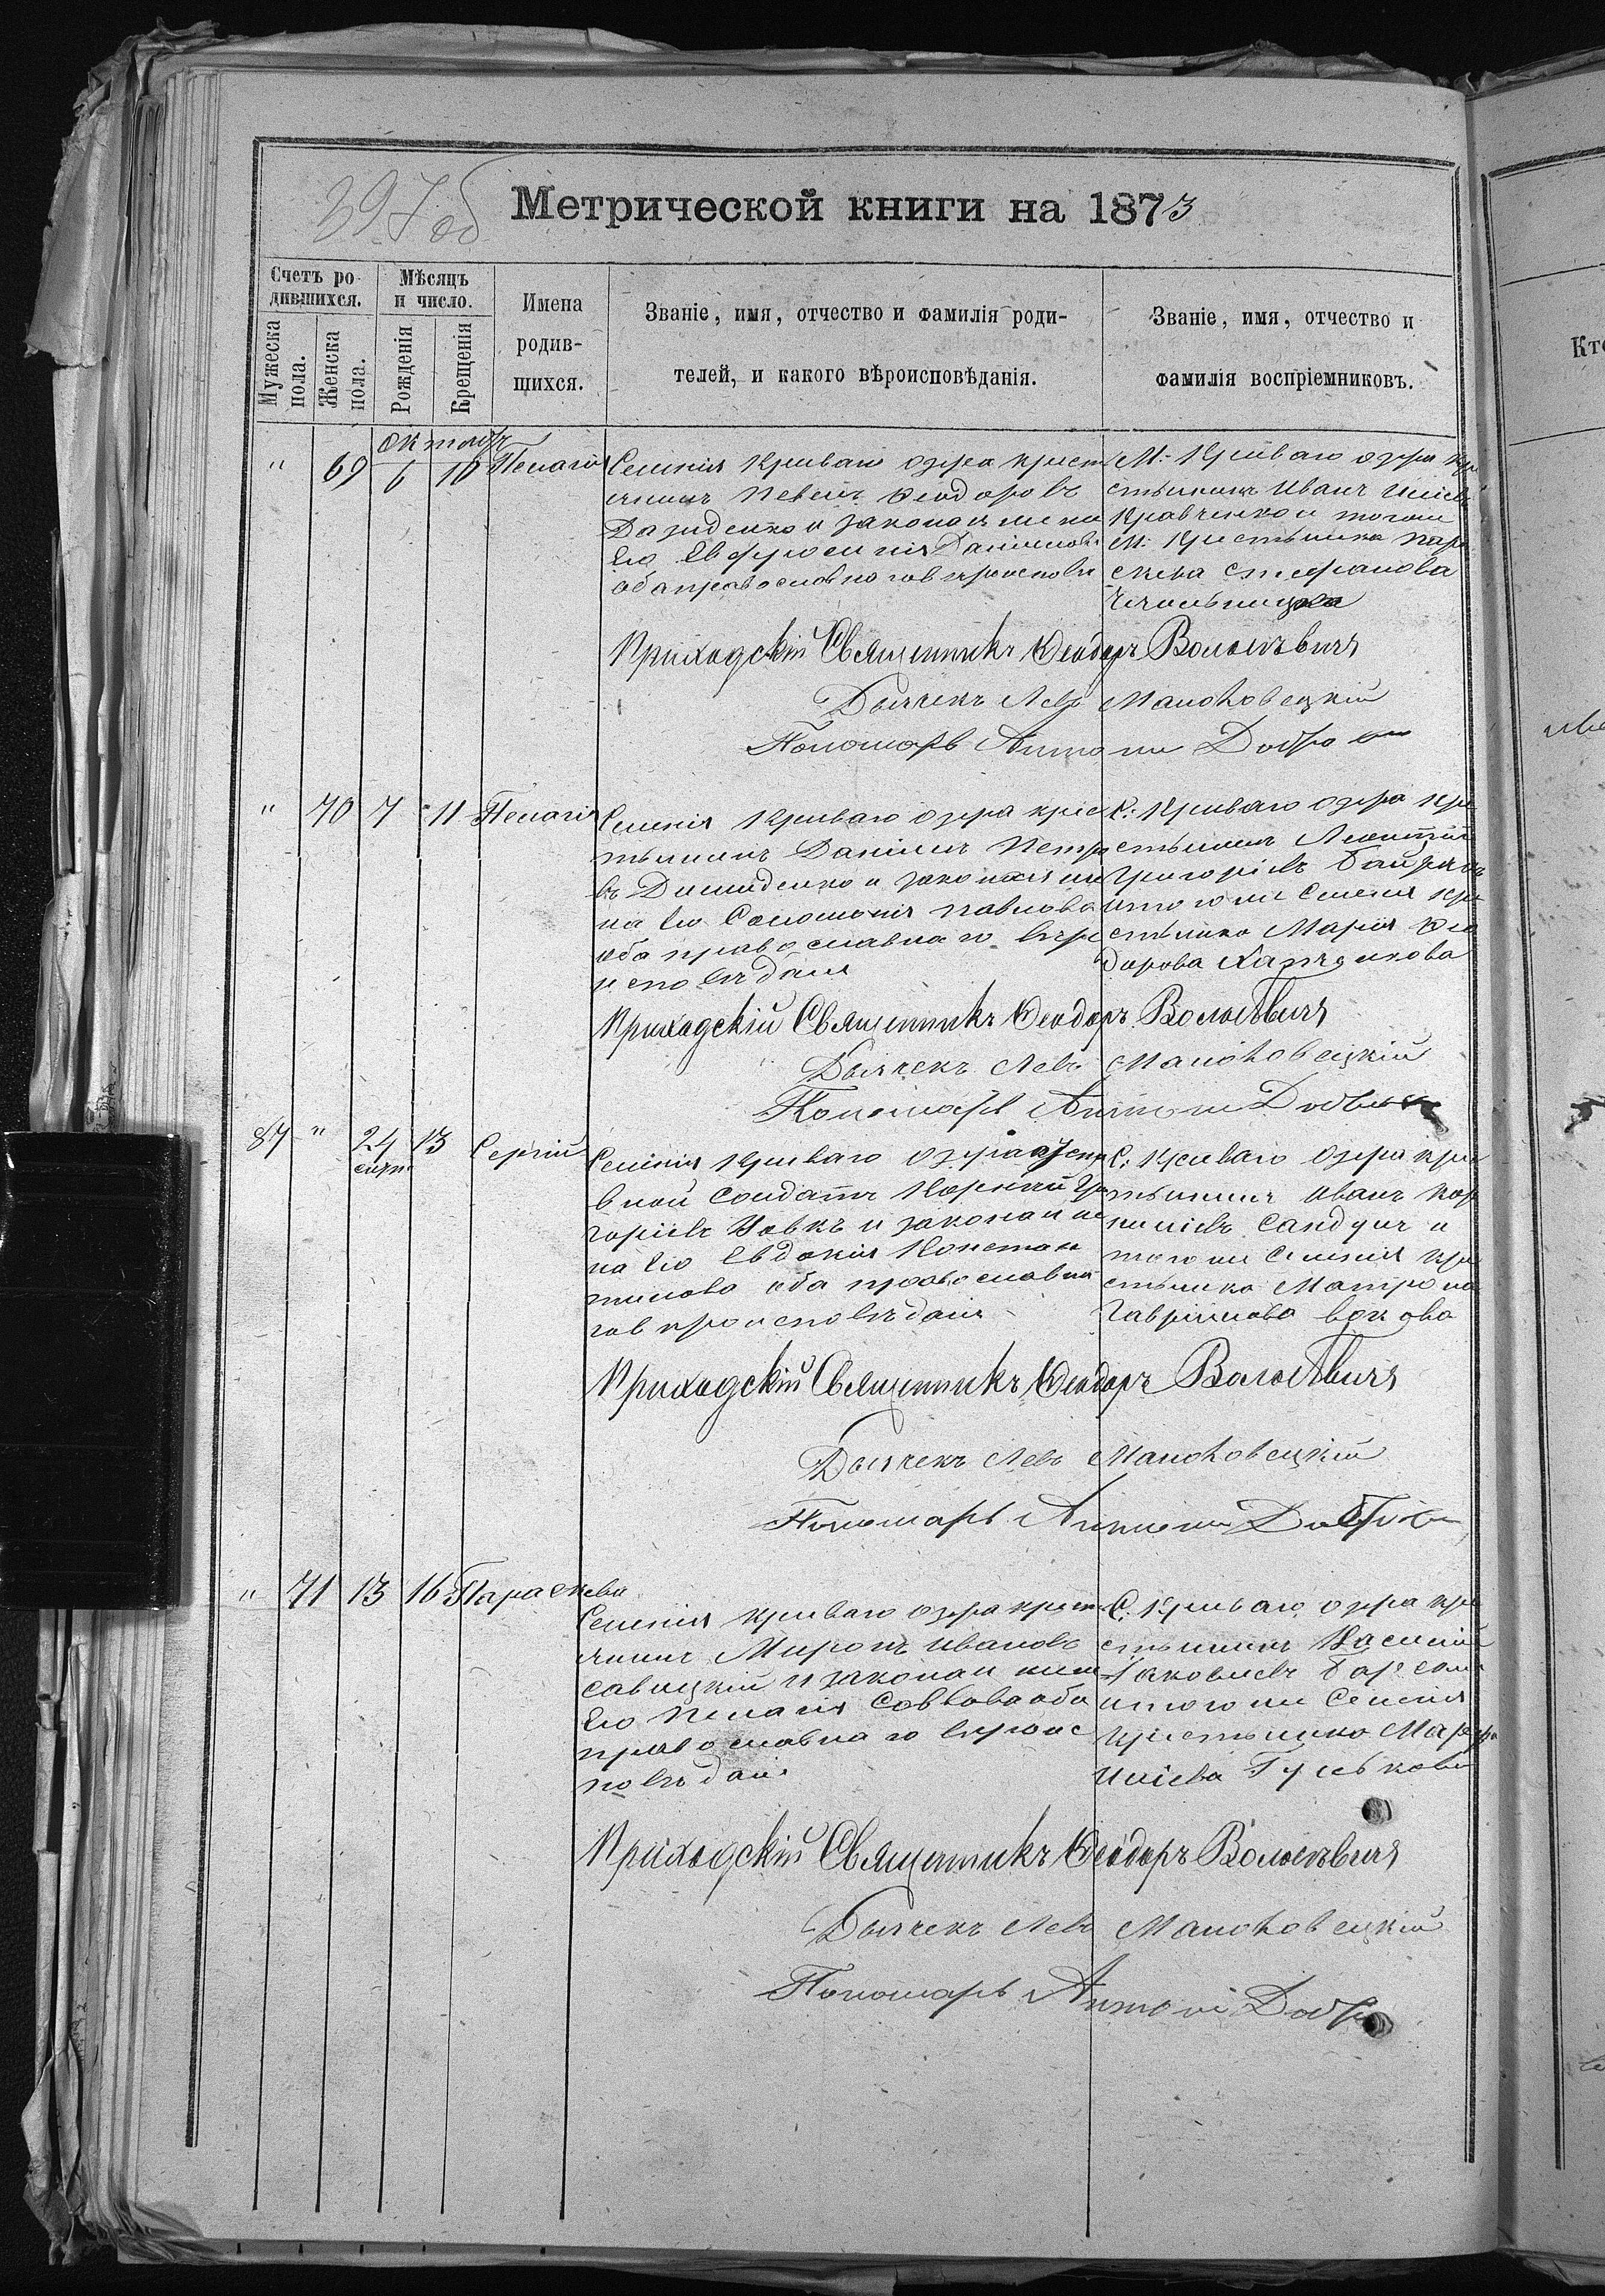 397 об
Метрической книги на 1873
Счетъ родившихся.
Мужеска пола.
Женска пола.
Мѣсяцъ и число.
Рожденія
Крещенія
Имена родившихся.
Званіе, имя, отчество и фамилія роди-
телей, и какого вѣроисповѣданія.
Званіе, имя, отчество и
фамилія воспріемниковъ.
Кто
Октябр
" 69 6 10 Пелагія
Селенія Криваго озера крест
янинъ Павелъ Феодоровъ
Давиденко и законая жена
Его Евфросинія Даніилова
оба православнаго вѣроисповѣ
М: Криваго озера кре
стьянинъ Иванъ Иліевъ
Кравченко и тогоже
М: Крестьянка Пара
скева Стефанова
Приходскій Священникъ Феодоръ
Дьячекъ Левъ Маньковецкій
Пономарь Антони
" 70 7 11 Пелагія
Селенія Криваго озера крес
тьянинъ Даніилъ Петро
въ Демиденко и законая же
на Его Соломонія Павлова
оба православнаго вѣро
исповѣданія
С: Криваго озера кре
стьянинъ Леонтій
Григоріевъ
и того же Селенія кре
стьянка Марія Фео
дорова
Приходскій Священникъ Феодоръ
Дьячекъ Левъ Маньковецкій
Пономарь Антони
87 " 24 сент. 13 Сергій
Селенія Криваго озера
вной Солдатъ Корній Гри
горіевъ Вовкъ и законая же
на Его Евдокія Констан
тинова оба православна
гов ѣроисповѣданія
С: Криваго озера крес
тьянинъ Иванъ Кор
ниліевъ Сандулъ и
того же Селенія кре
стьянка Матрона
Гавріилова
Приходскій Священникъ Феодоръ
Дьячекъ Левъ Маньковецкій
Пономарь Антони
" 71 13 16 Параскева
Селенія Криваго озера крест
янинъ Миронъ Ивановъ
Савицкій и законая жена
Его Пелагія Саввова оба
православнаго вѣроис
повѣданія
С: Криваго озера кре
стьянинъ Василій
Яковлевъ
и того же Селенія
Крестьянка Марфа
Иліева Гуськова
Приходскій Священникъ Феодоръ
Дьячекъ Левъ Маньковецкій
Пономарь Антоній